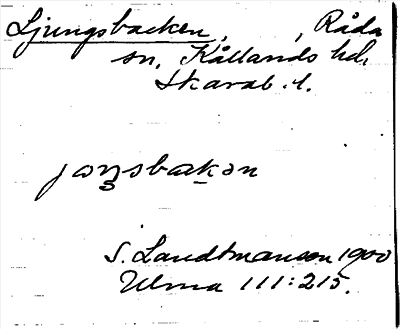 Ljungsbacken, , Råda
sn, Kållands hd,
Skarab. l.
jɷŋsbakən
S. Landtmanson 1900
Ulma 111:215.